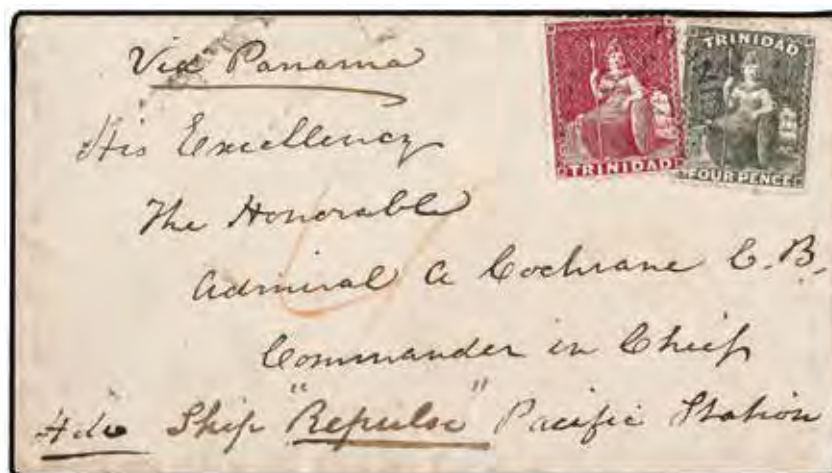 Via Panama
TRINIDAD
TRINIDAD
FOUR PENCE
His Excellency
The Honorable
Admiral A Cochrane C.B.
Commander in Chief
Ship "Repulse" Pacific Station